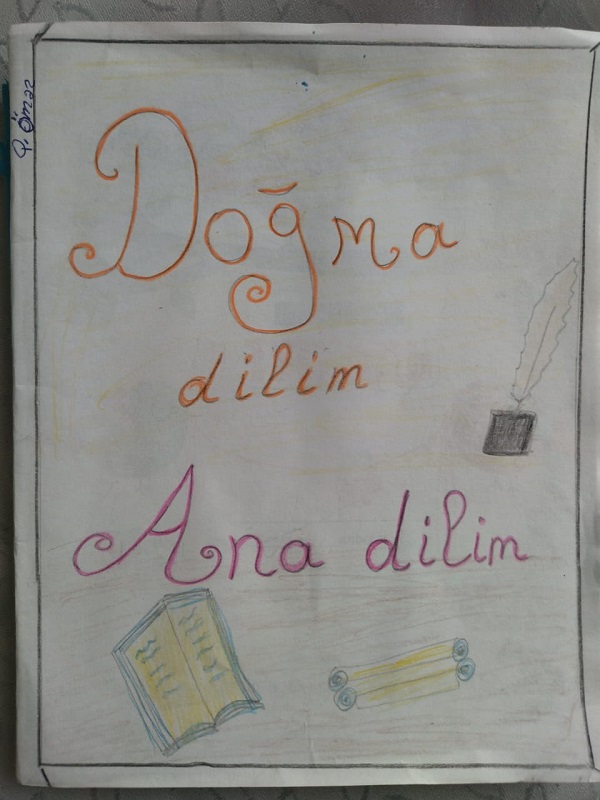 Q. Ömər
Doğma
dilim
Ana dilim